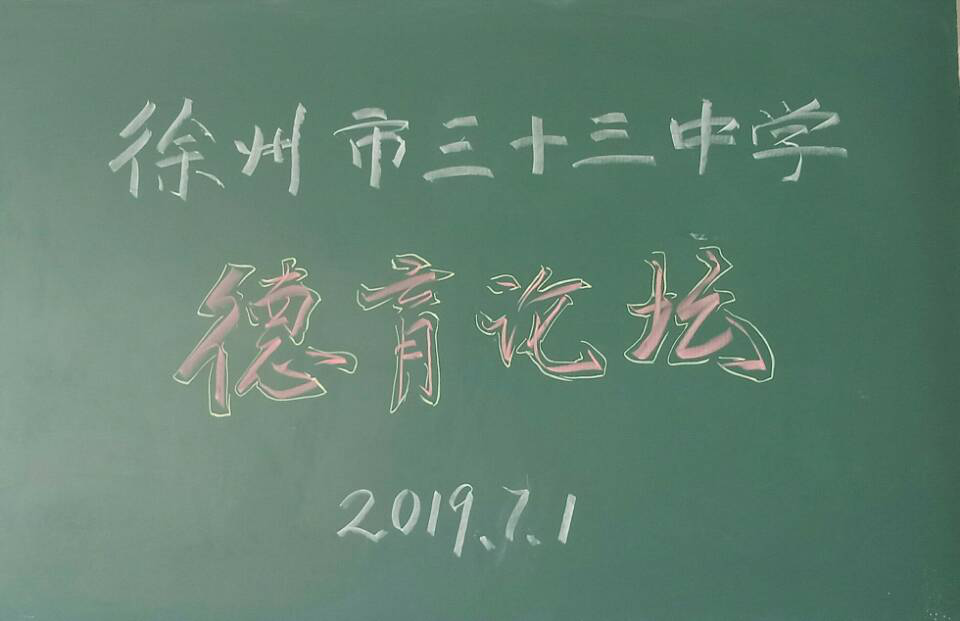 徐州市三十三中学
德育论坛
2019.7.1